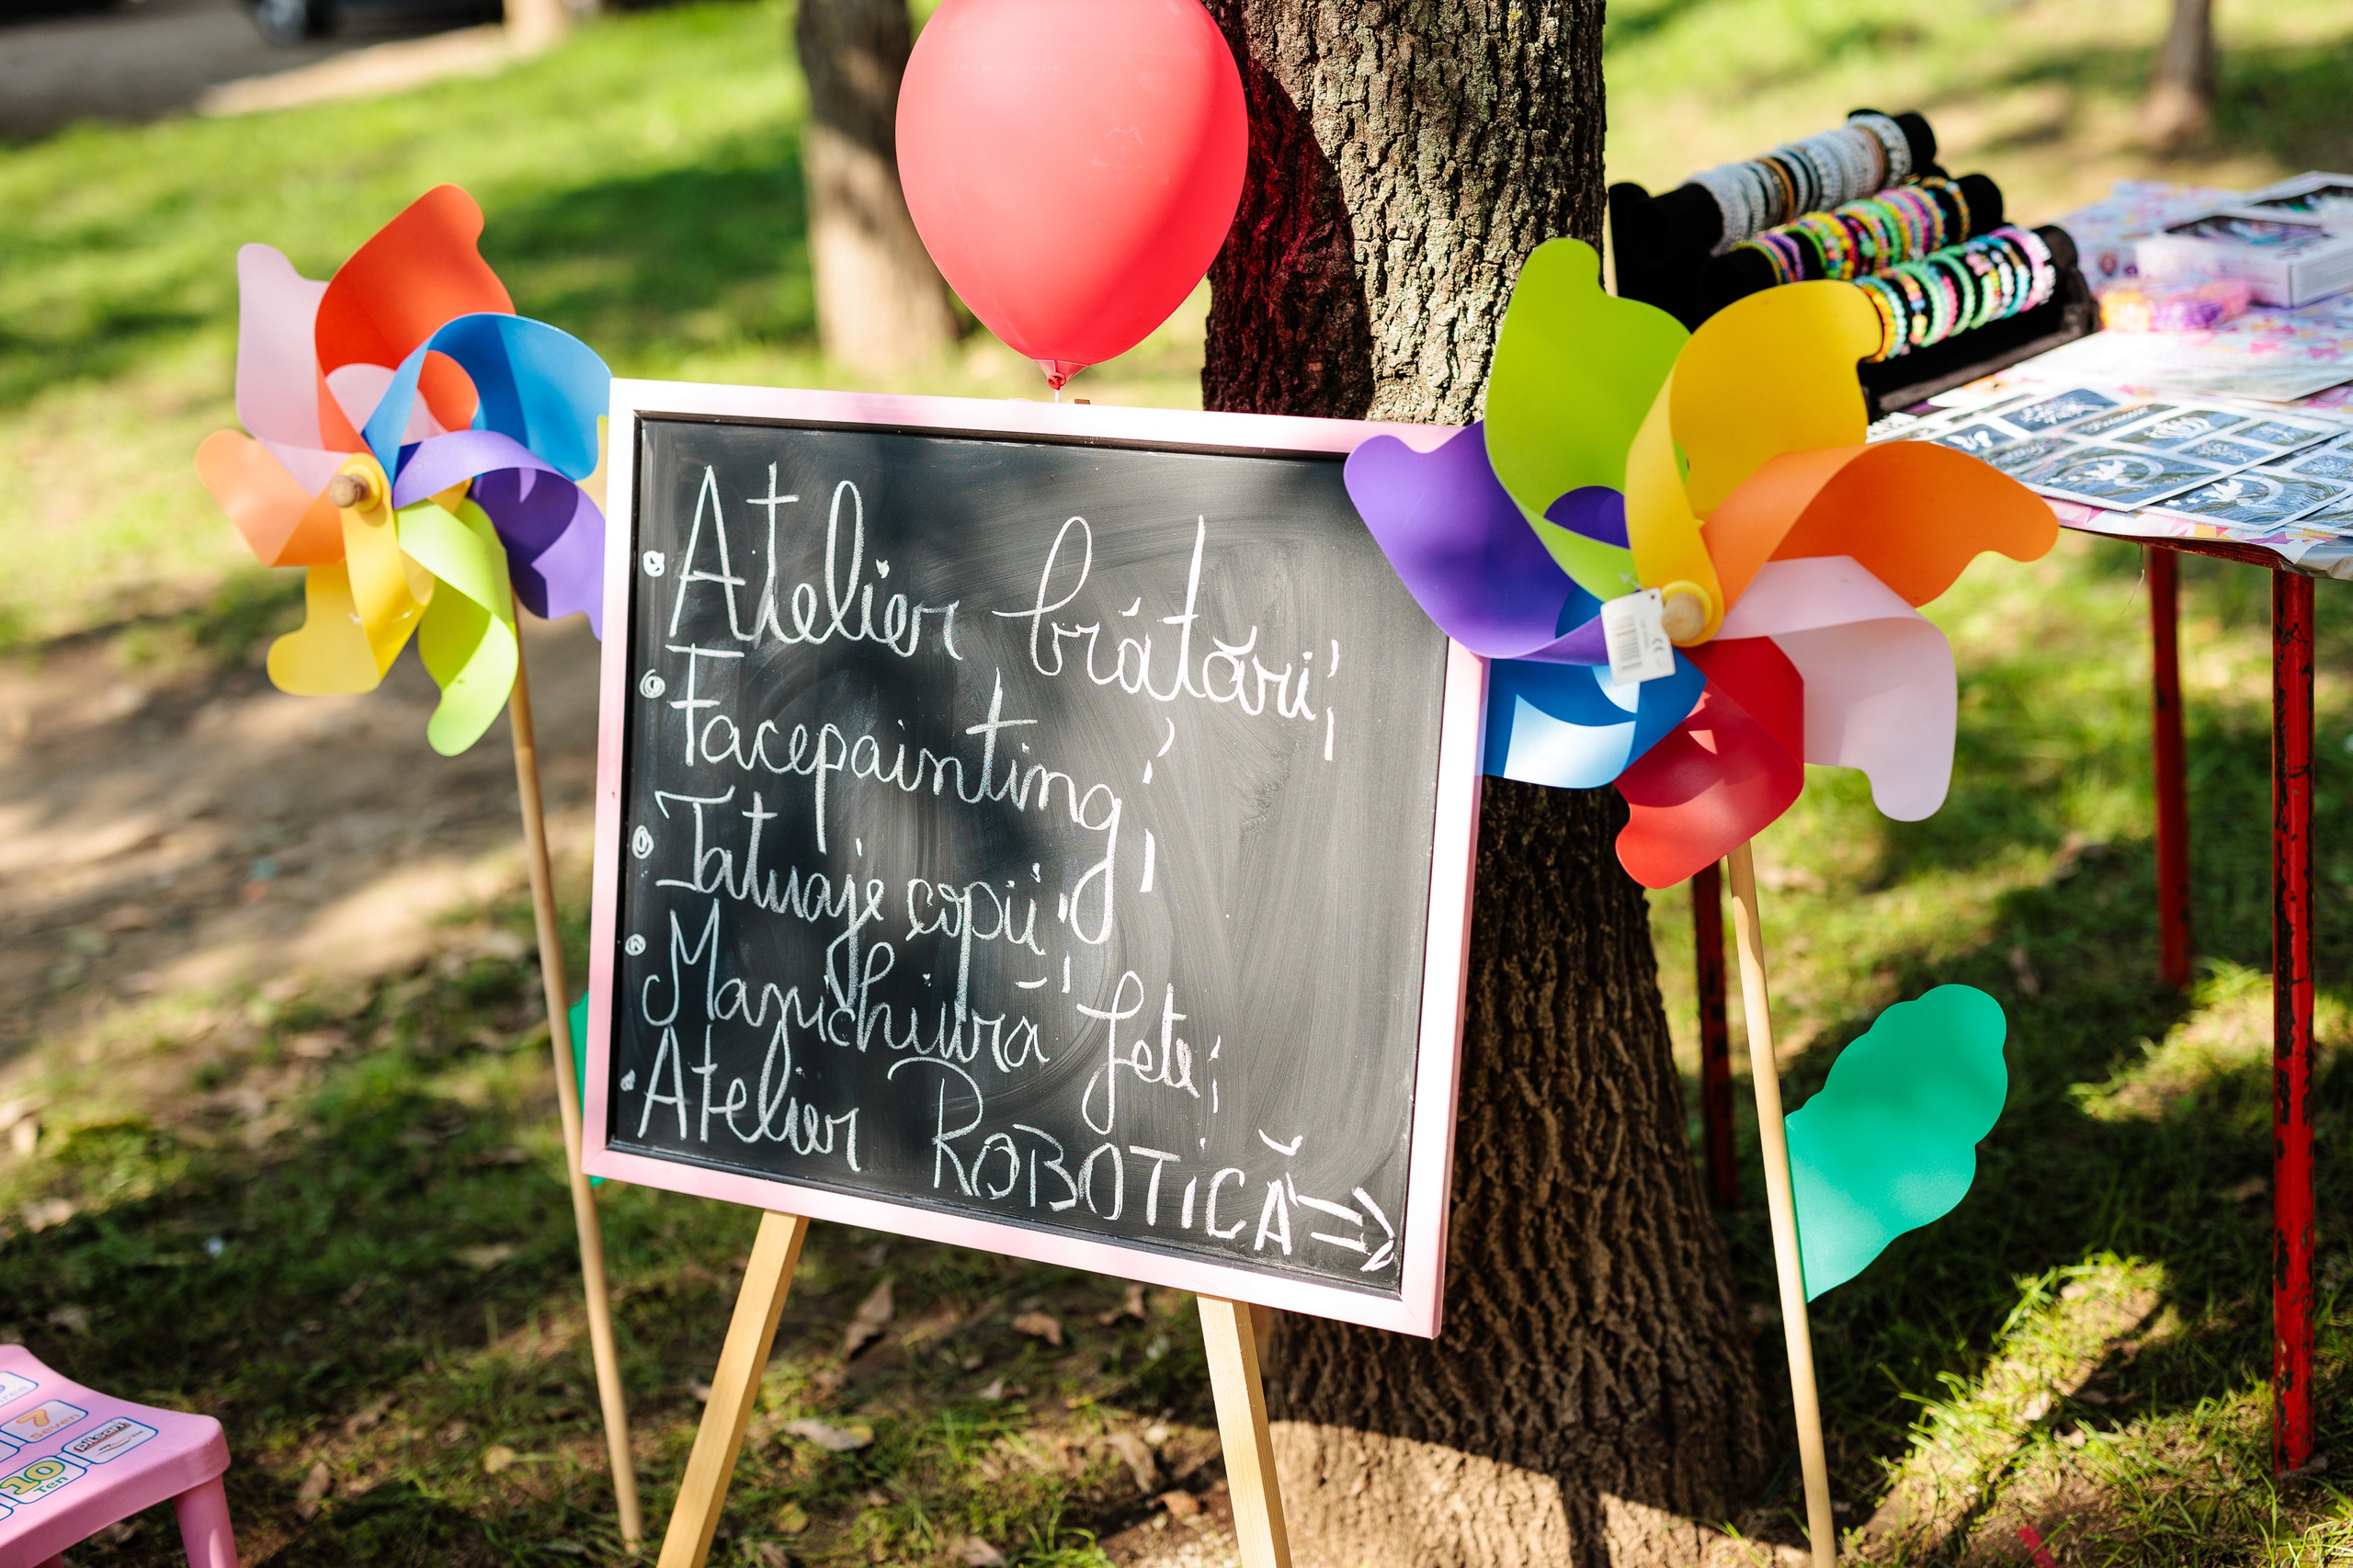 • Atelier brățări;
• Facepainting;
• Tatuaje copii;
• Manichiură fete;
• Atelier ROBOTiCĂ ⇒
7
Seven
pilsan
10
Ten